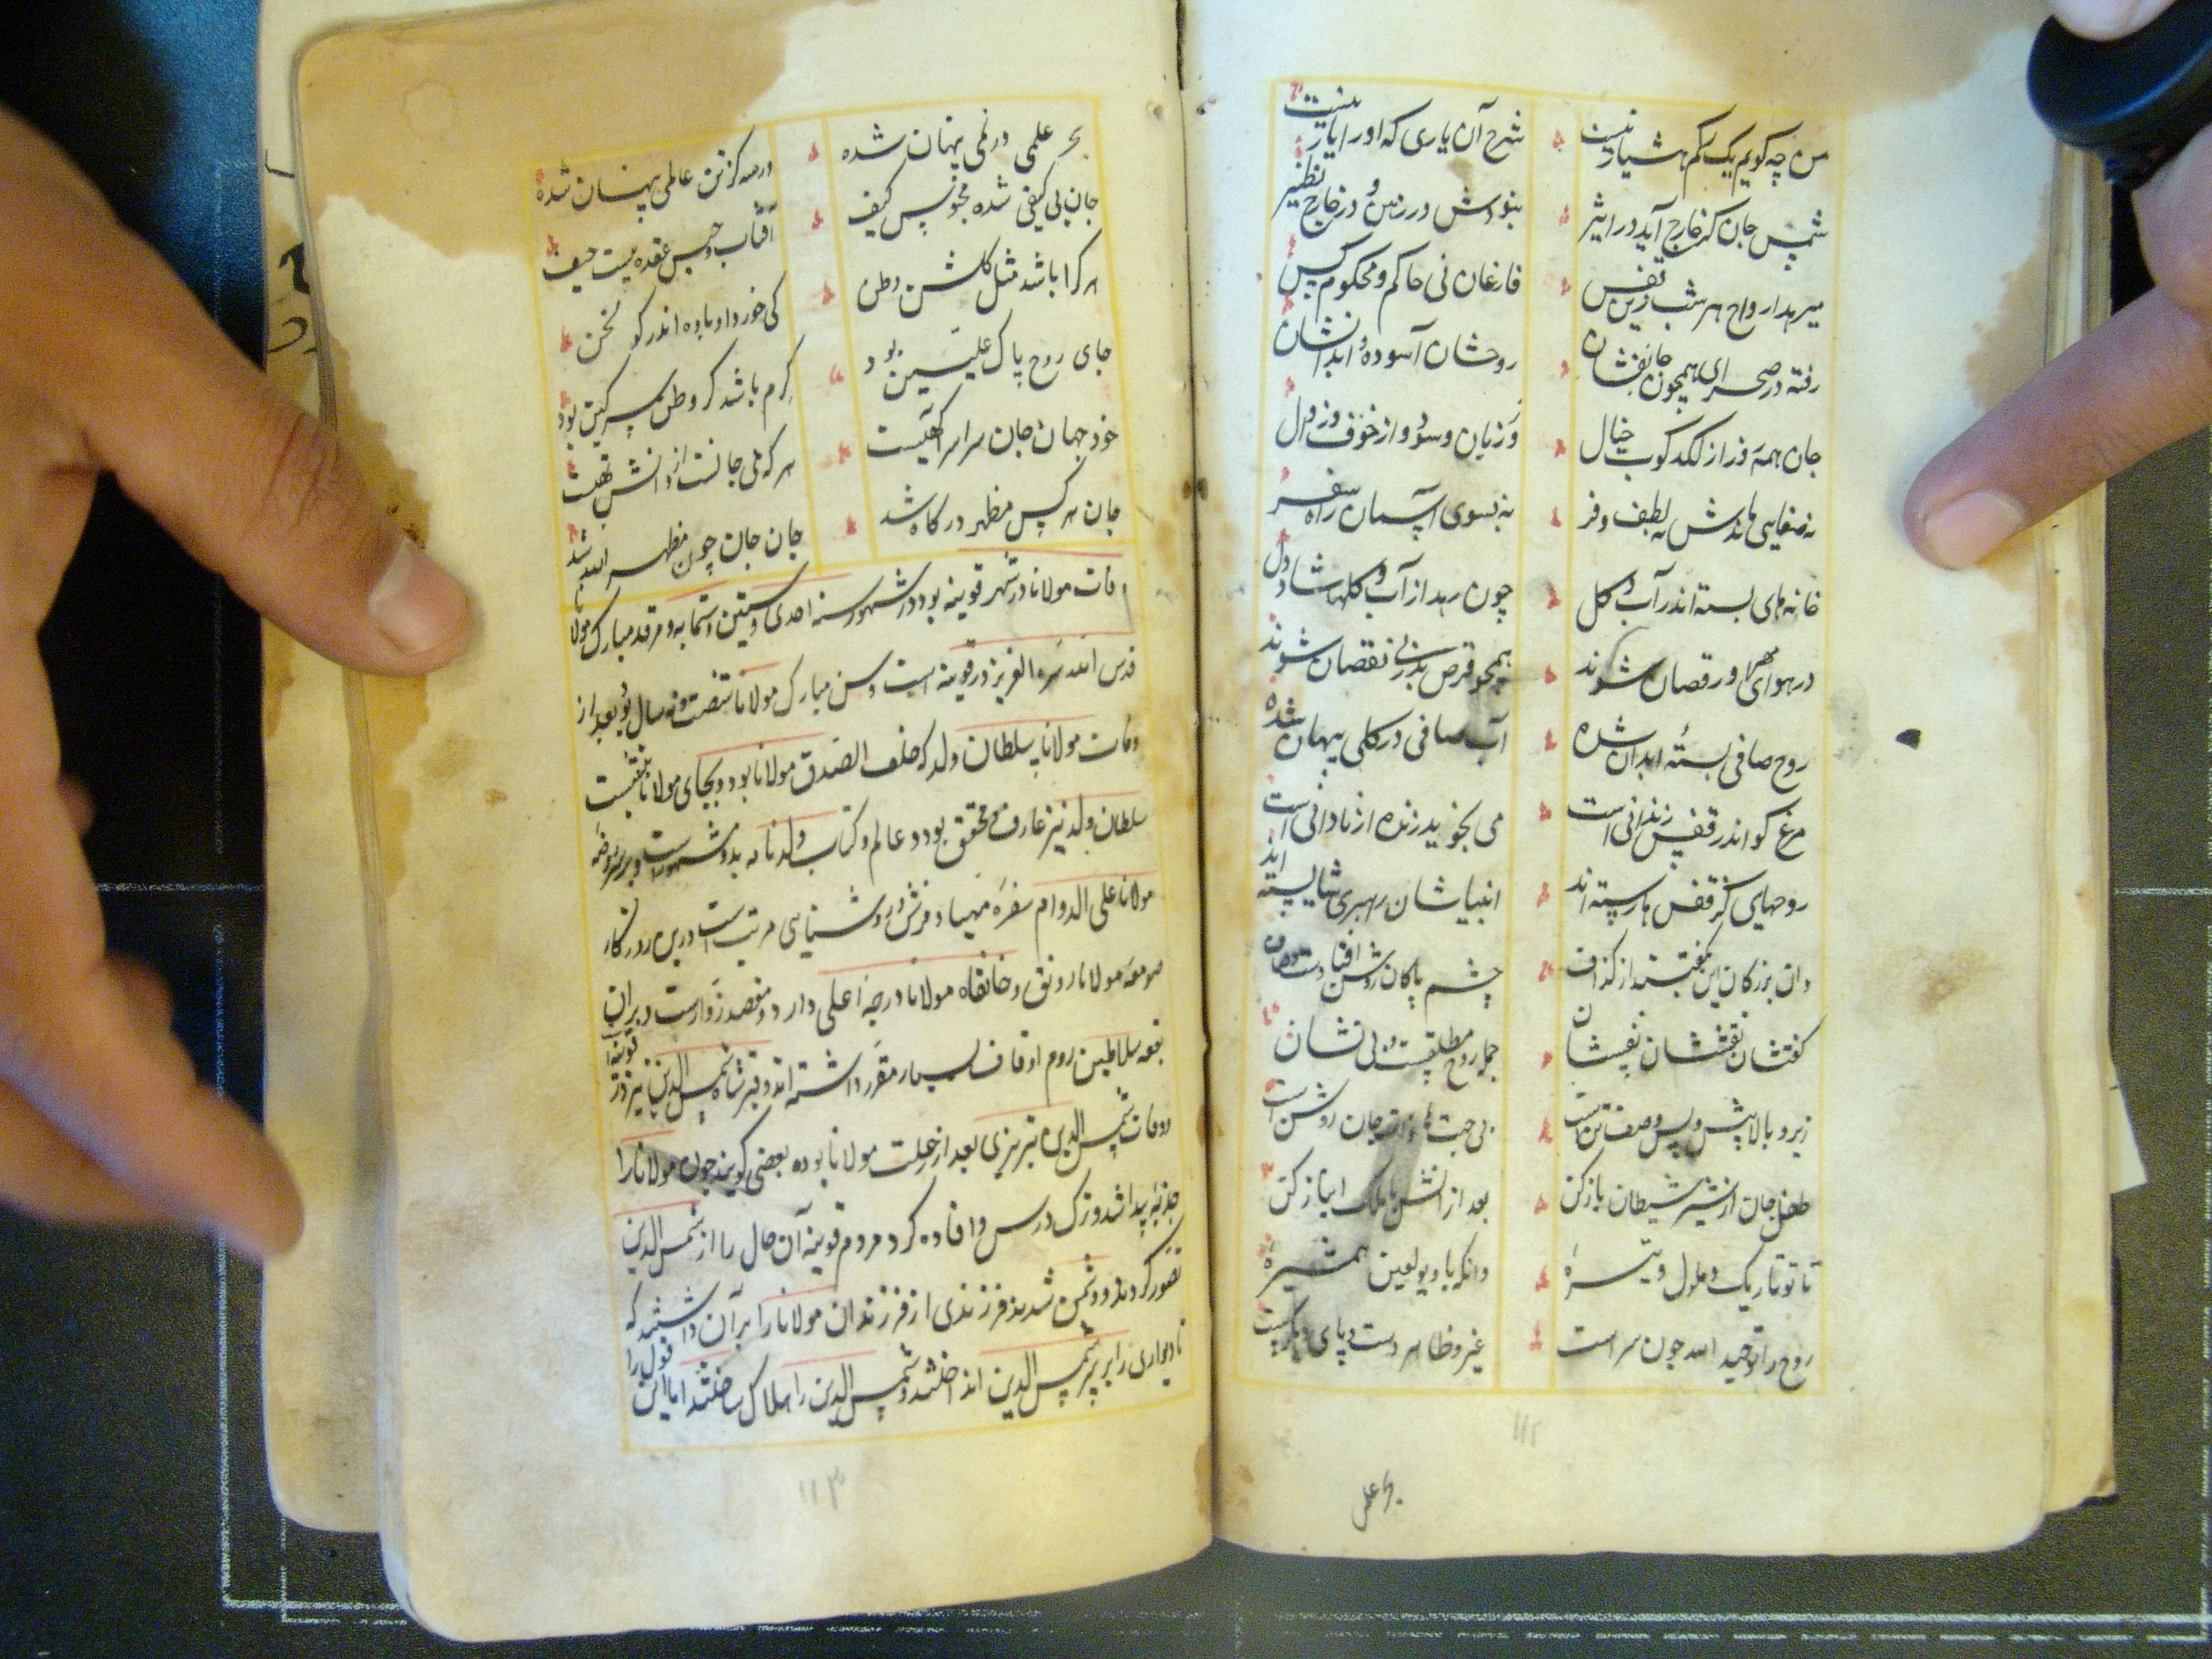 من چه گویم یک رگم هشیار نیست شرح آن یاری که او را یار نیست
شمس جان کز خارج آید در اثیر نبودش در ذهن و در خارج نظیر
میرهد ارواح هر شب زین قفس فارغان نی حاکم و محکوم کس
رفته در صحرای همچون جانشان روحشان آسوده و ابدانشان
جان همه فر از لکدکوب خیال وز زیان و سود و از خوف زوال
نه صفایی ماندش نه لطف و فر نه بسوی آسمان راه سفر
خانه های بسته اندر آب و کل چون رهد از آب و کلها شاد دل
در هوای مهر او رقصان شوند همچو قرص بدر بی نقصان شوند
روح صافی بسته ابدان شده آب صافی در کلی پنهان شده
مرغ کو اندر قفس زندانی است می نجوید رزنده از نادانی است
روحهایی کز قفس ها رسته اند انبیاشان رهبری شایسته اند
وان بزرکان این نکفتند از کزاف جسم پاکان
کفتشان نقششان نفسشان جمله روح مطلقست و بی نشان
زیر و بالا پیش و پس وصف تن است بی جهت ها ذات جان روشن است
طفل جان از شیر شیطان باز کن بعد از آنش با ملک انباز کن
تا تو تاریک و ملول و تیره وانکه با دیو لعین همشیره
روح را توحید الله چون سر است غیر و ظاهر دست و پای دیکرست
۱۱۲
بحر علمی
بحر علمی در نمی پنهان شده در سه گز تن عالمی پنهان شده
جان بی کیفی شده محبوس کیف آفتاب و حبس عقده ایست حیف
هر کرا باشد مثل کلشن وطن کی خورد او باده اندر کولخن
جای روح پاک علیین بود کرم باشد کر وطن سرکین بود
خود جهان جان سراسر آکهیست هر که بی جانست از دانش تهیست
جان هر کس مظهر درکاه شد جان جان چون مظهر الله شد
وفات مولانا در شهر قوینه بود در شهور سنه احدی و ستین و ستمایه و مرقد مبارک مولانا
قدس الله سره العزیز در قوینه است و سن مبارک مولانا شصت و نه سال بود بعد از
وفات مولانا سلطان ولد که خلف الصدق مولانا بود بجای مولانا بنشست
سلطان ولد نیز عارف و محقق بود و عالم و کتاب ولد نامه بدو مشهور است و بر سر روضه
مولانا علی الدوام سفره مهیا و فرش و روشنایی مرتب است و درین روزکار
صومعه مولانا رونق و خانقاه مولانا درجه اعلی دارد و مقصد زوار است و بران
بقعه سلاطین روم اوقاف بسیار مقرر داشته اند و قبر شاه شمس الدین نیز در قوینه است
و وفات شمس الدین تبریزی بعد از رحلت مولانا بوده بعضی کویند چون مولانا را
جذبه پیدا شد و ترک درس و افاده کرد مردم قوینه آن حال را از شمس الدین
تصور کردند و دشمن شدند فرزندی از فرزندان مولانا را بر آن داشتند که
تا دیواری را بر سر شمس الدین انداختند و شمس الدین را هلاک ساختند اما این قول را
۱۱۳